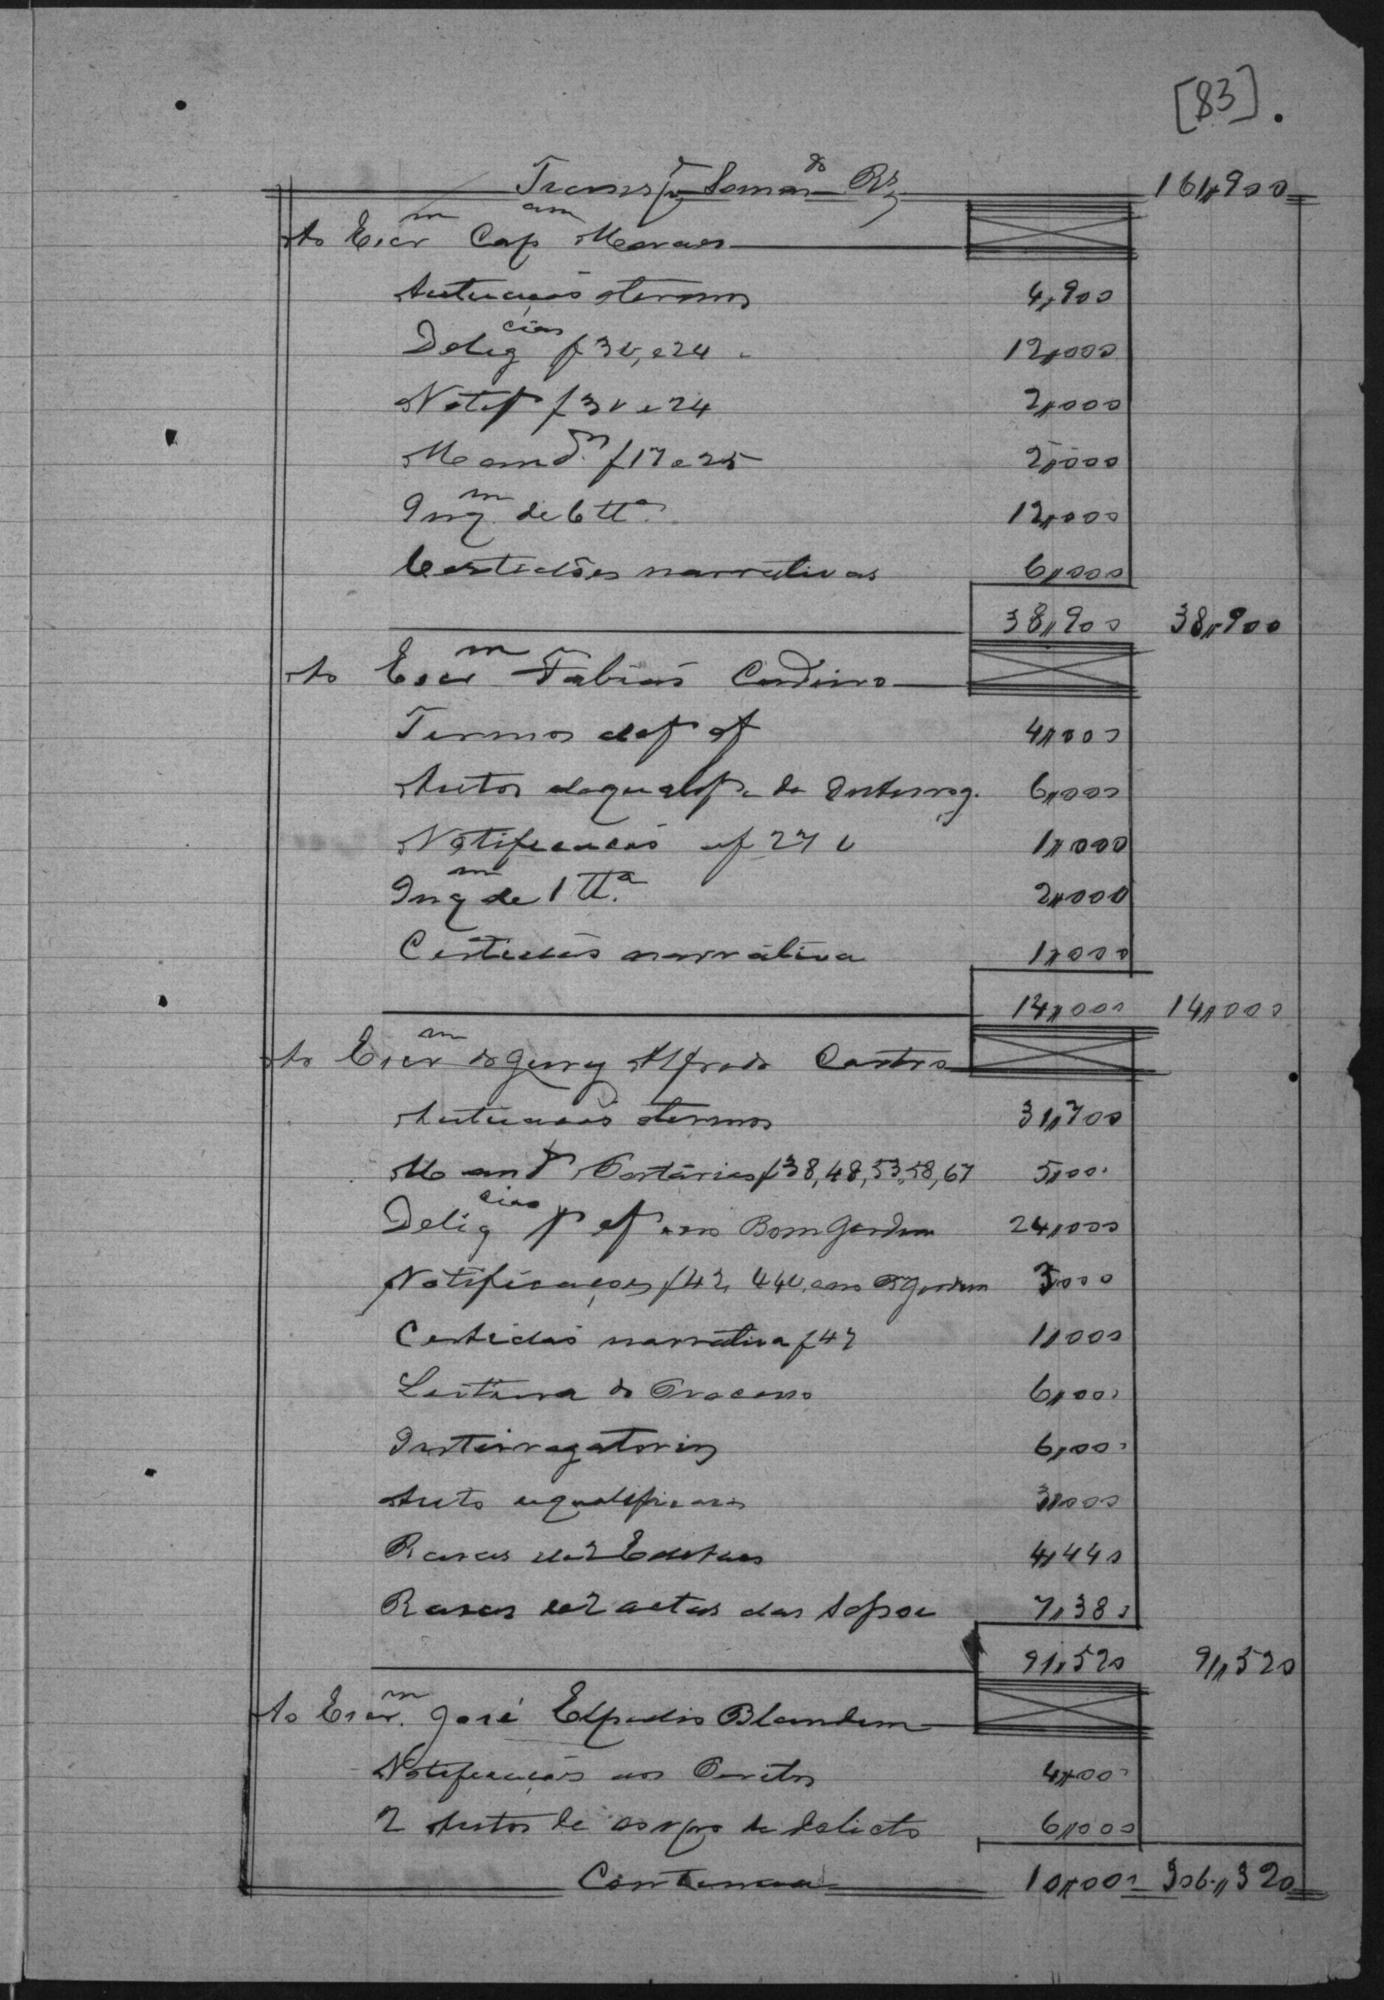 [83].
Transpte Somando Rs 161,,900
Ao Escrm Capam Moraes
Autuação e termos 4,900
Deligcias f 3v, e 24 12,,000
Notif f 3v e 24 2,,000
Mandos f 17 e 25 2,,000
Inqm de 6 ttas 12,,000
Certidões narrativas 6,,000
38,,900 38,,900
Ao Escrm Fabião
Termos de f a f 4,,000
Autos de qualif e de Interrog. 6,,000
Notificação a f 27 v 1,,000
Inqm de 1 tta. 2,,000
Certidão narrativa 1,,000
14,,000 14,,000
Ao Escrm do Jury Alfredo Castro
Autuação e termos 31,,700
Mandos Portarias f 38, 48, 53, 58, 67 5,,000
Deligcias f a f e no Bom Jardim 24,,000
Notificações f 42, 44v, e no B Jardim 3,000
Certidão narrativa f 47 1,,000
Leitura do Processo 6,,000
Interrogatorios 6,,000
Auto e qualificação 3,,000
Rasas de 2 Editaes 4,,440
Rasas de 2 actas das Sessões 7,,380
91,,520 91,,520
Ao Escrm. José Elpidio Blandim
Notificação aos Peritos 4,,000
2 Autos de corpo de delicto 6,,000
Continua 10,,000 306,,320